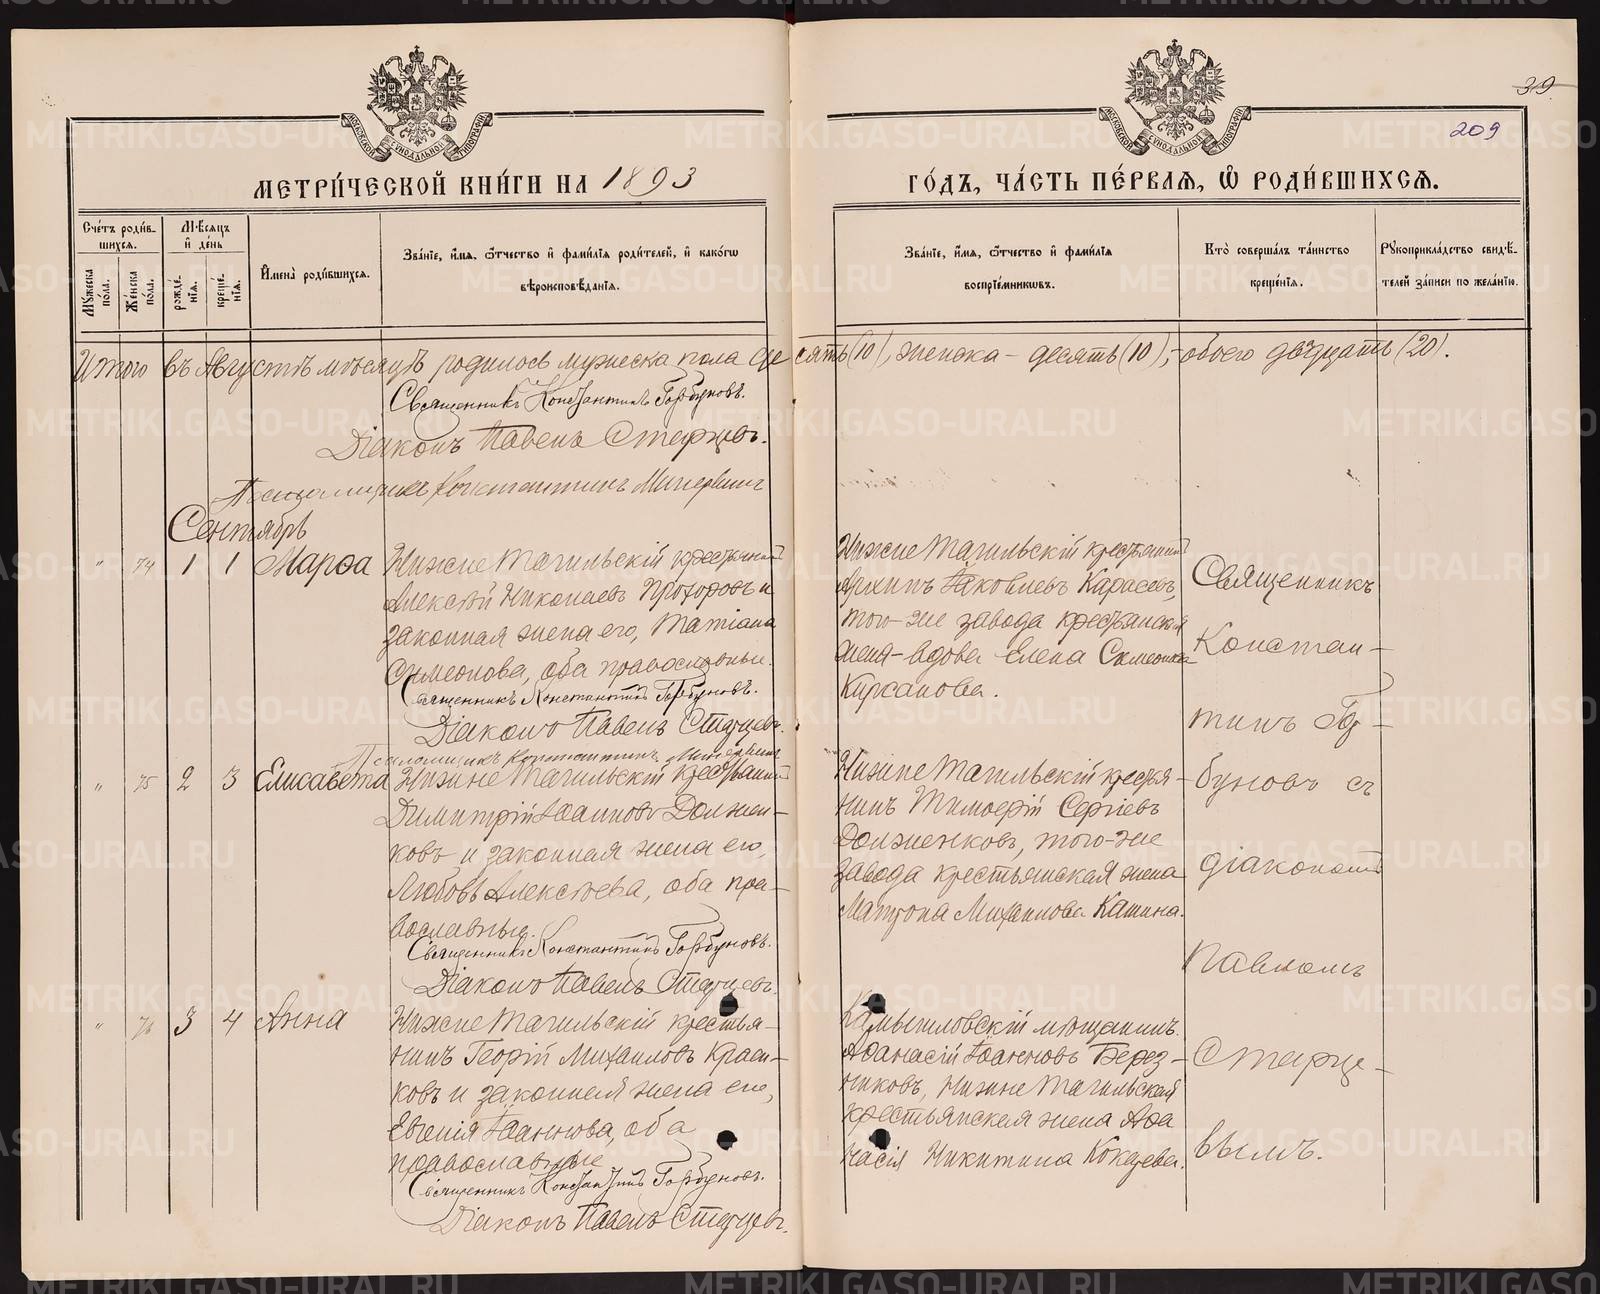 39.
209
МОСКОВСКОЙ СѴНОДАЛЬНОЙ ТИПОГРАФІИ
МОСКОВСКОЙ СѴНОДАЛЬНОЙ ТИПОГРАФІИ
МЕТРИ́ЧЕСКОЙ КНИ́ГИ НА 1893
ГО́ДЪ, ЧА́СТЬ ПЕ́РВАѦ, Ѽ РОДИ́ВШИХСѦ.
Сче́тъ роди́в-
шихсѧ.
Мꙋ́жеска по́ла.
Же́нска по́ла.
Мѣ́сѧцъ
и҆ де́нь
рожде́-
нїѧ.
креще́-
нїѧ.
И҆мена̀ роди́вшихсѧ.
Зва́нїе, и҆́мѧ, ѻ҆́тчество и҆ фами́лїѧ роди́телей, и҆ како́гѡ
вѣроисповѣ́данїѧ.
Зва́нїе, и҆́мѧ, ѻ҆́тчество и҆ фами́лїѧ
воспрїе́мникѡвъ.
Кто̀ соверша́лъ та́инство
креще́нїѧ.
Рꙋкоприкла́дство свидѣ́-
телей за́писи по жела́нїю.
Итого въ Августѣ мѣсяцѣ родилось мужеска пола десять (10), женска – десять (10), – обоего двадцать (20).
Священникъ Константинъ Горбуновъ.
Діаконъ Павелъ Старцевъ.
Псаломщикъ Константинъ Минервинъ
Сентябрь
" 74 1 1 Марѳа
Нижне Тагильскій крестьянинъ
Алексѣй Николаевъ Прохоровъ и
законная жена его, Татіана
Симеонова, оба православные.
Священникъ Константинъ Горбуновъ.
Діаконъ Павелъ Старцевъ.
Псаломщикъ Константинъ Минервинъ
Нижне Тагильскій крестьянинъ
Архипъ Іаковлевъ Карасевъ,
того-же завода крестьянская
жена-вдова Елена Симеонова
Кирсанова.
" 75 2 3 Елисавета
Нижне Тагильскій крестьянинъ
Димитрій Іоанновъ Должен-
ковъ и законная жена его,
Любовь Алексѣева, оба пра-
вославные.
Священникъ Константинъ Горбуновъ.
Діаконъ Павелъ Старцевъ.
Нижне Тагильскій крестья-
нинъ Тимоѳей Сергіевъ
Долженковъ, того-же
завода крестьянская жена
Матрона Михаилова Катина.
" 76 3 4 Анна
Нижне Тагильскій крестья-
нинъ Георгій Михаиловъ Краси-
ковъ и законная жена его,
Евгенія Іоаннова, оба
православные
Священникъ Константинъ Горбуновъ.
Діаконъ Павелъ Старцевъ.
Камышловскій мѣщанинъ
Аѳанасій Іоанновъ Берез-
никовъ, Нижне Тагильская
крестьянская жена Ана
стасія Никитина
Священникъ
Констан-
тинъ Гор-
буновъ съ
діакономъ
Павломъ
Старце-
вымъ.
METRIKI.GASO-URAL.RU